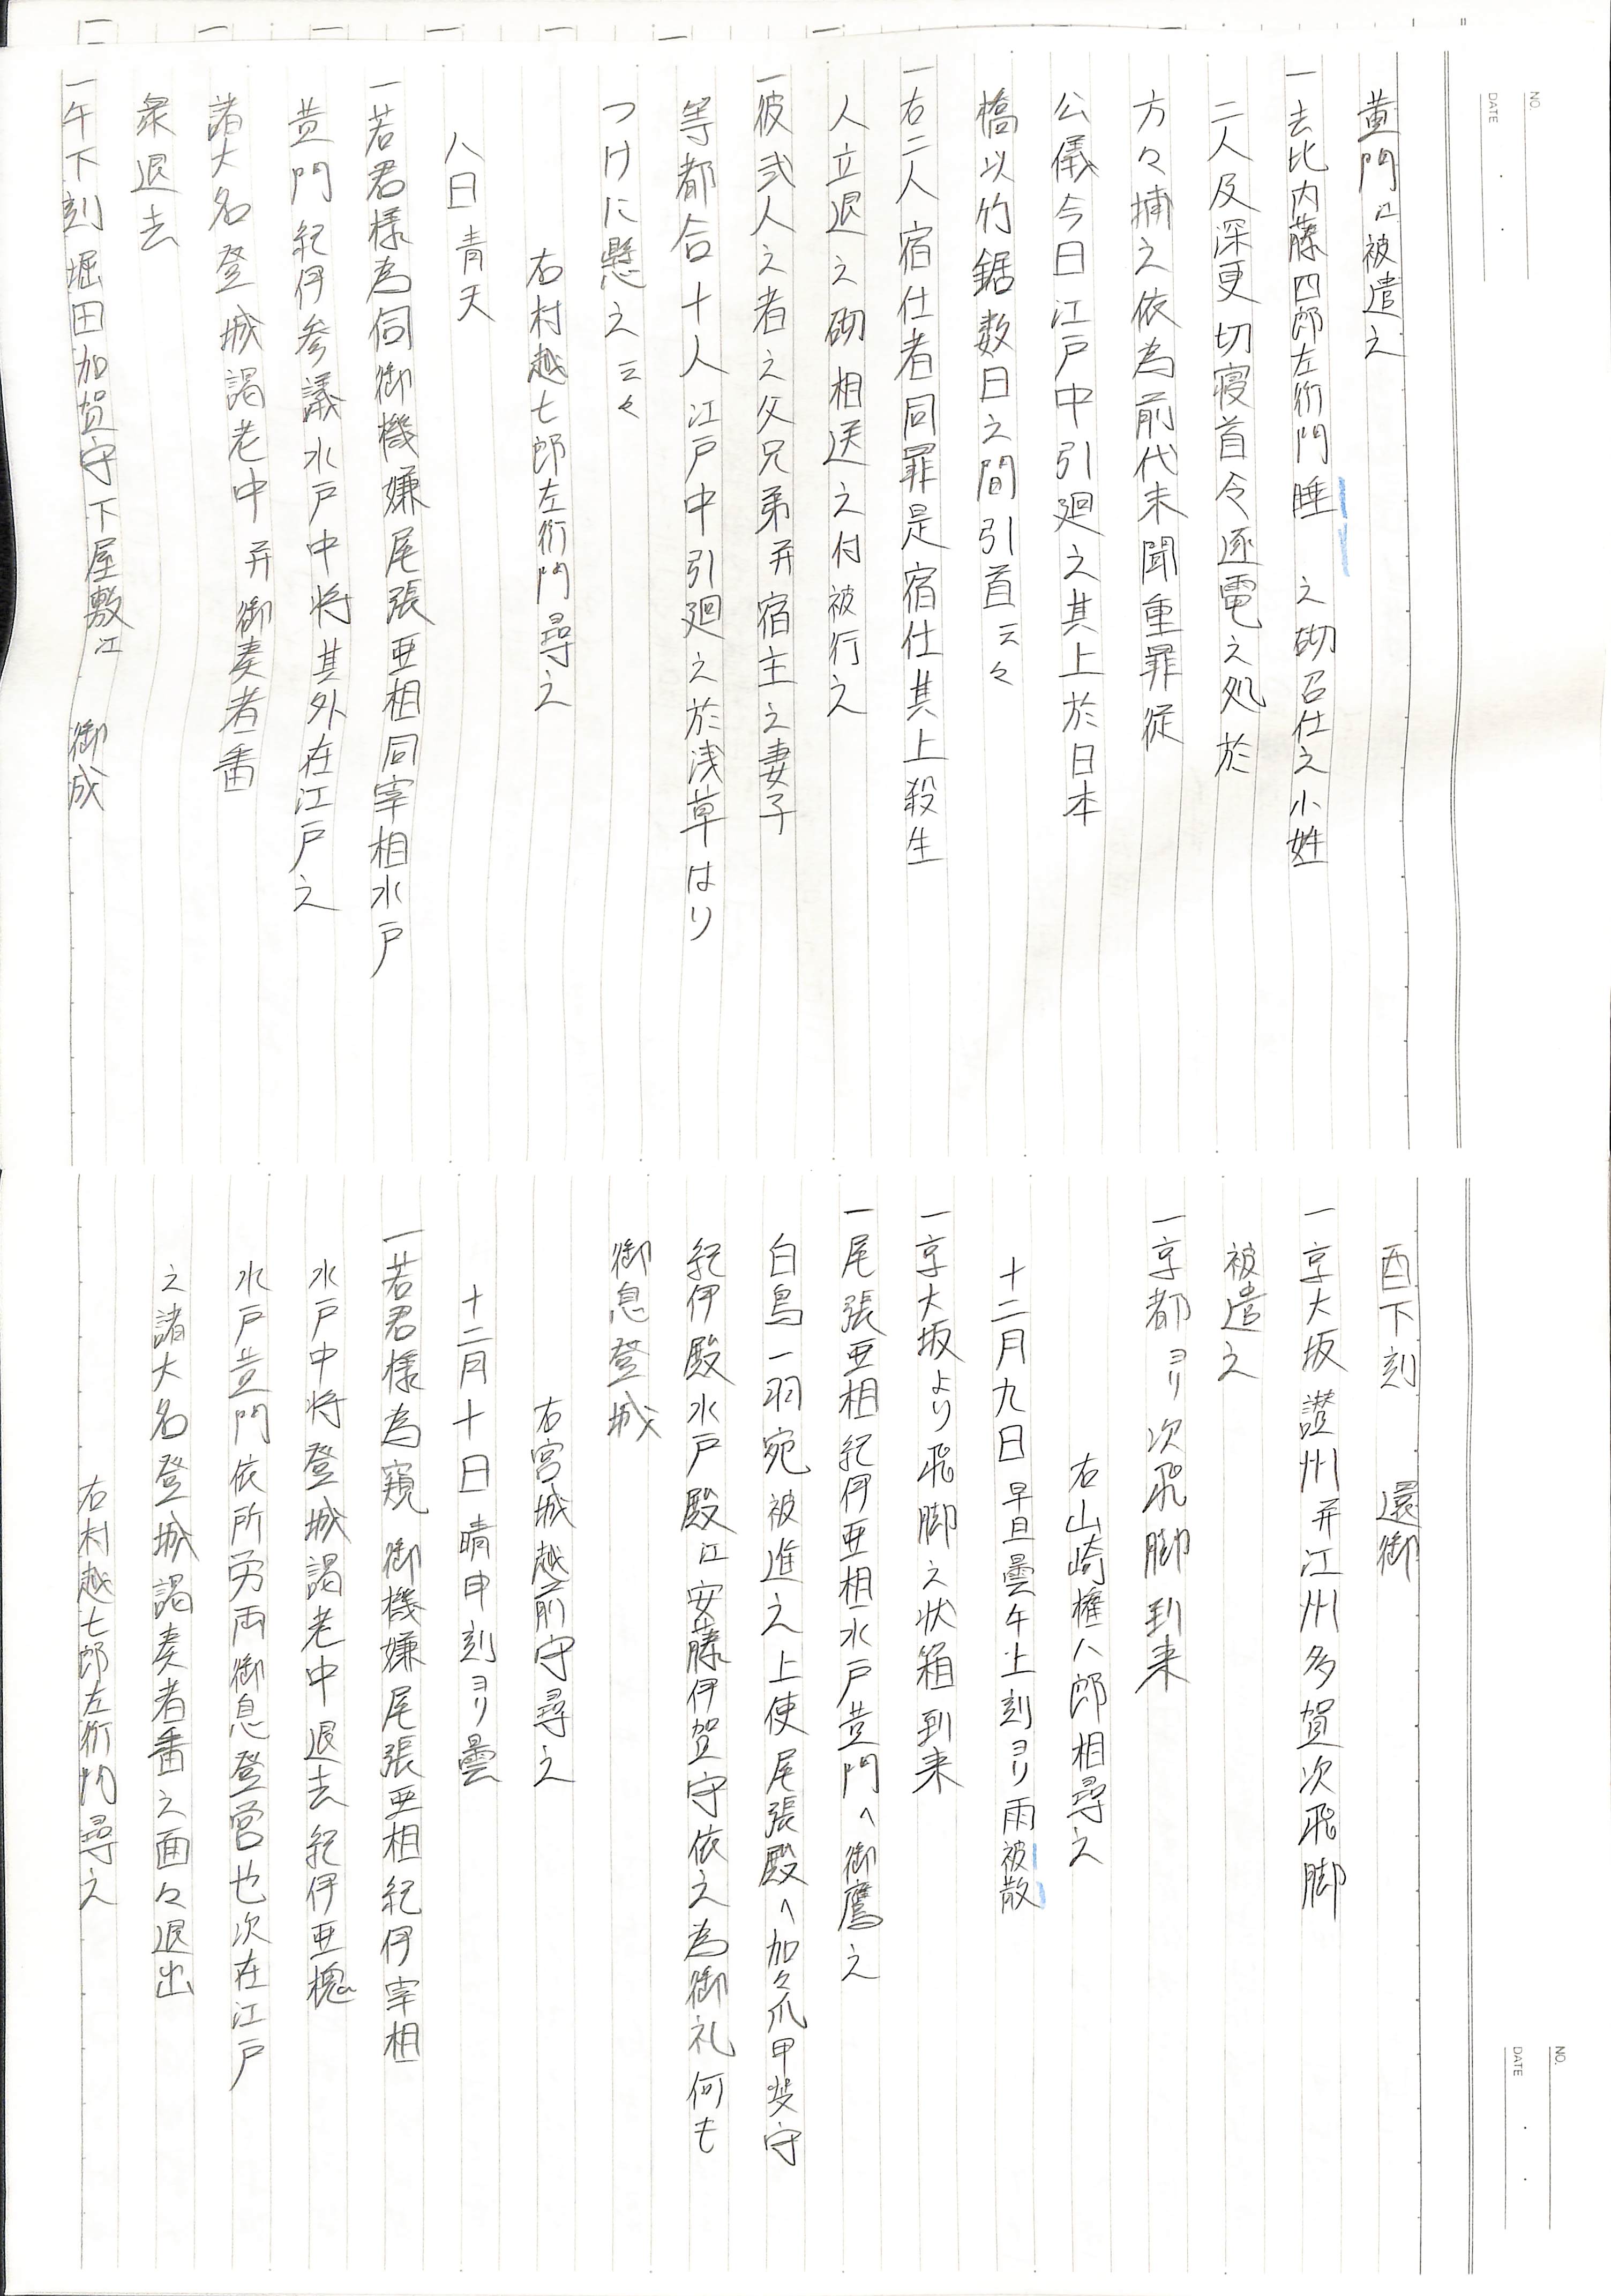 NO.
DATE
黄門江被遣之
一去比内藤四郎左衛門睡　之砌召仕之小姓
二人及深更切寝首令逐電之処於
方々捕之依為前代未聞重罪従
公儀今日江戸中引廻之其上於日本
橋以竹鋸数日之間引首云々
一右二人宿仕者同罪是宿仕其上殺生
人立退之砌相送之付被行之
一彼弐人之者之父兄弟并宿主之妻子
等都合十人江戸中引廻之於浅草はり
つけに懸之云々
右村越七郎左衛門尋之
八日青天
一若君様為伺御機嫌尾張亜相同宰相水戸
黄門紀伊参議水戸中将其外在江戸之
諸大名登城謁老中并御奏者番
衆退去
一午下刻堀田加賀守下屋敷江　御成
NO.
DATE
酉下刻　還御
一京大坂讃州并江州多賀次飛脚
被遣之
一京都ヨリ次飛脚到来
右山崎権八郎相尋之
十二月九日早旦曇午上刻ヨリ雨被散
一京大坂より飛脚之状箱到来
一尾張亜相紀伊亜相水戸黄門へ御鷹之
白鳥一羽宛被進之上使尾張殿へ加々爪甲斐守
紀伊殿水戸殿江安藤伊賀守依之為御礼何も
御息登城
右宮城越前守尋之
十二月十日晴申刻ヨリ曇
一若君様為窺御機嫌尾張亜相紀伊宰相
水戸中将登城謁老中退去紀伊亜槐
水戸黄門依所労両御息登営也次在江戸
之諸大名登城謁奏者番之面々退出
右村越七郎左衛門尋之